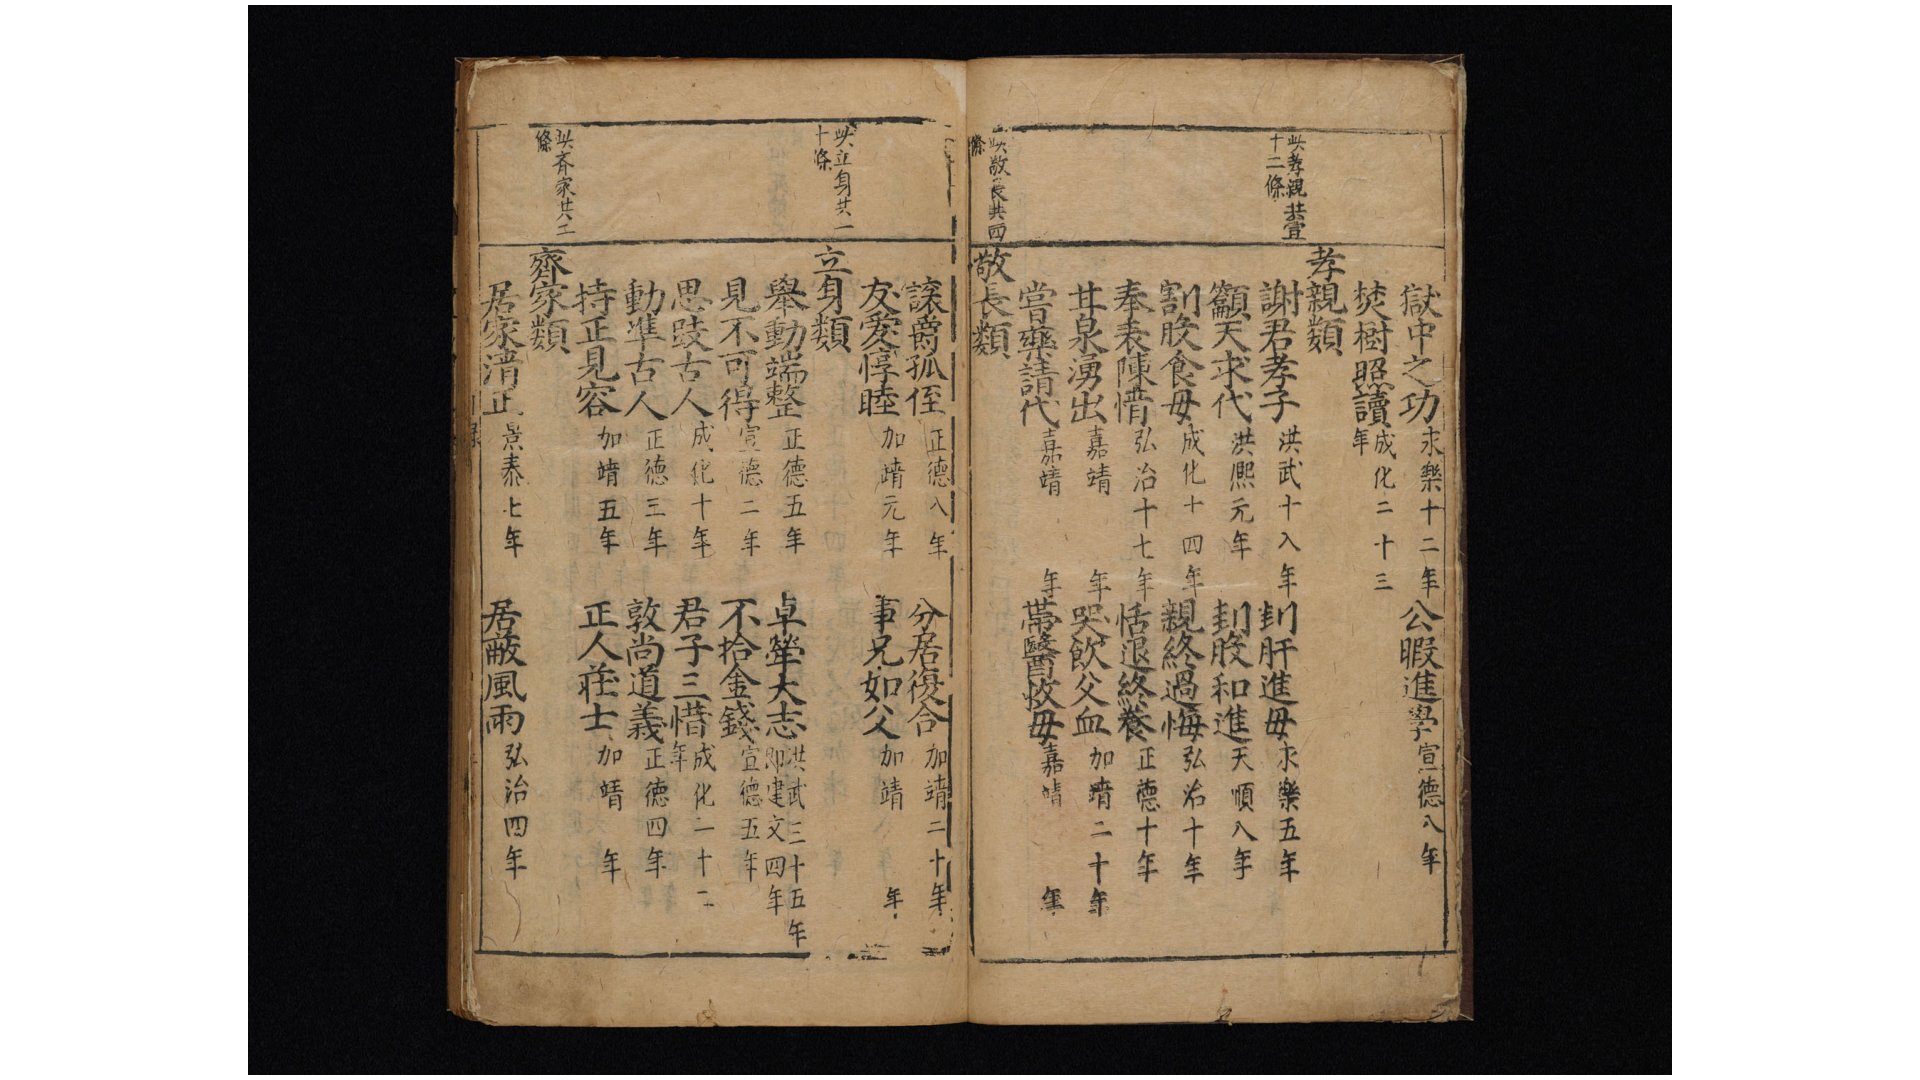 獄中之功永樂十二年 公暇進學宣德八年
焚樹照讀成化二十三年
此孝親共壹十二條
孝親類
謝君孝子洪武十八年 刲肝進母永樂五年
籲天求代洪熙元年 刲股和進天順八年
割股食母成化十四年 親終過悔弘治十年
奉表陳情弘治十七年 恬退終養正德十年
甘泉湧出嘉靖 年 哭飲父血加靖二十年
嘗藥請代嘉靖 年 帶醫救母嘉靖 年
此敬長共四條
敬長類
讓爵孤侄正德八年 分居復合加靖二十年
友愛惇睦加靖元年 事兄如父加靖 年
此立身共一十條
立身類
舉動端整正德五年 卓犖大志洪武三十五年即建文四年
見不可得宣德二年 不拾金錢宣德五年
思跂古人成化十年 君子三惜成化二十二年
動準古人正德三年 敦尚道義正德四年
持正見容加靖五年 正人莊士加靖 年
此齊家共二條
齊家類
居家清正景泰七年 居蔽風雨弘治四年